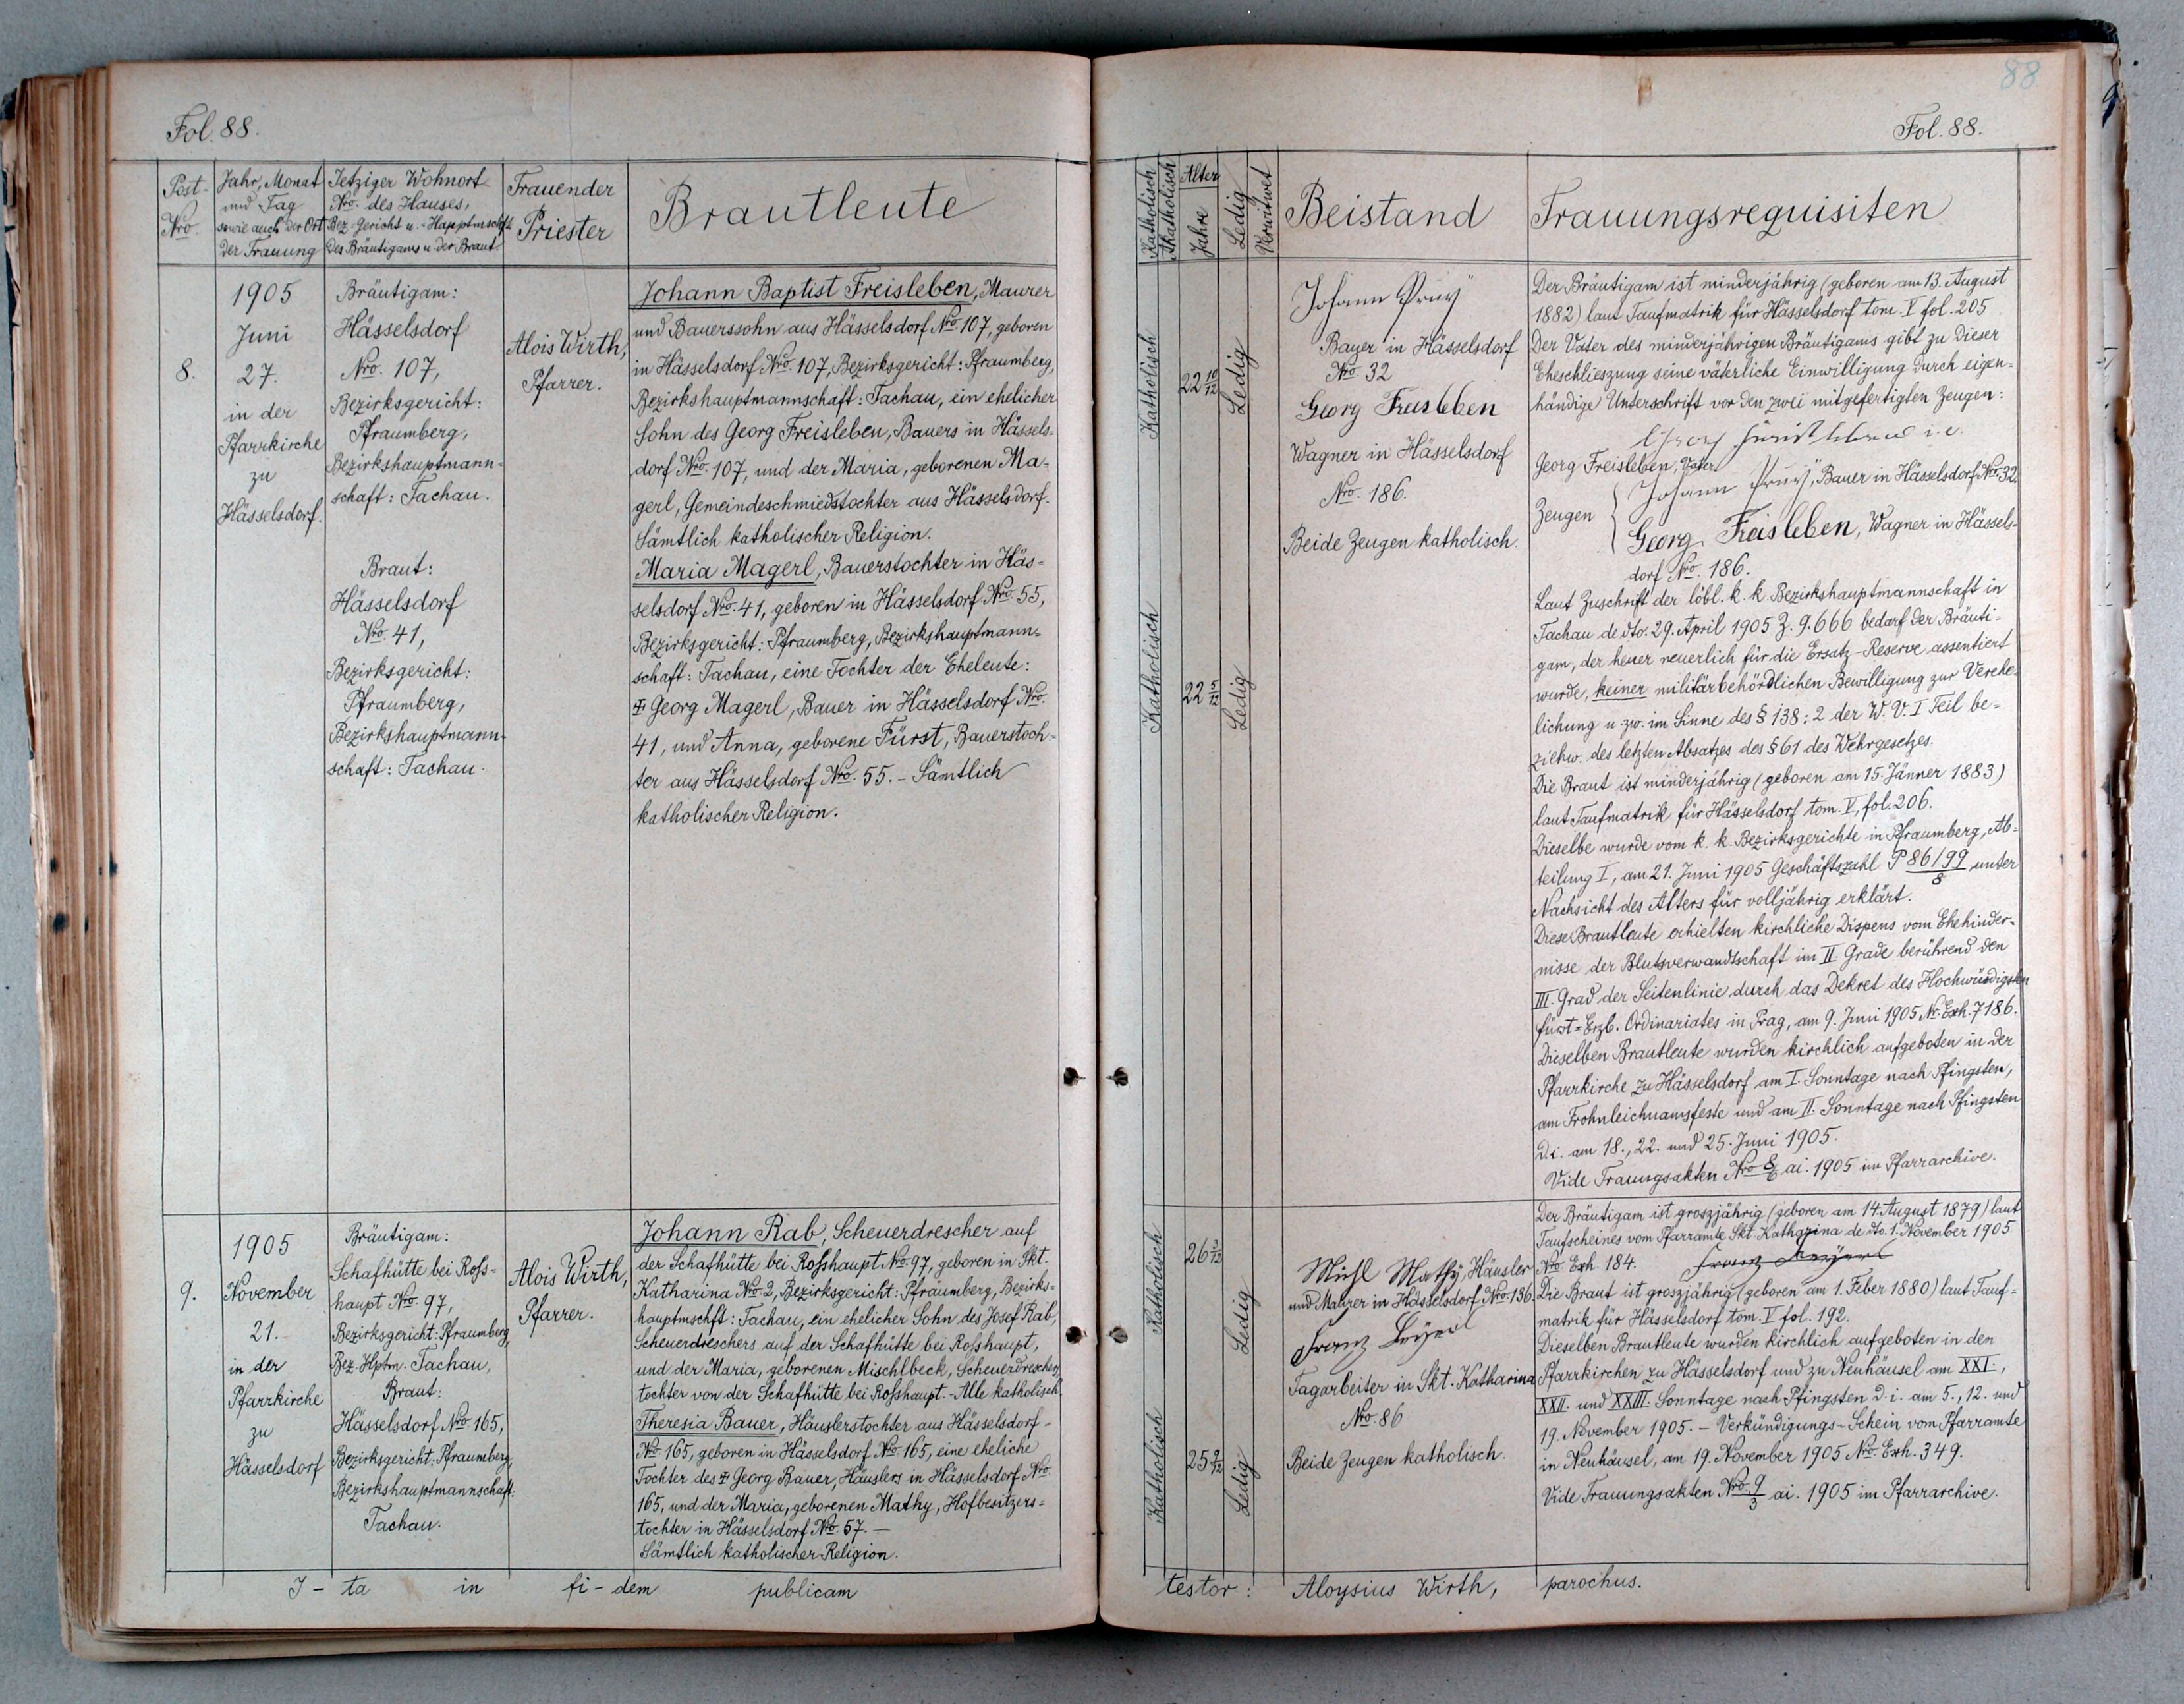 88
Fol. 88.
Fol. 88.
Post-
Nro.
Jahr, Monat
und Tag
sowie auch der Ort
der Trauung
Jetziger Wohnort
Nro. des Hauses,
Bez.-Gericht u.-Hauptmschft
des Bräutigams u. der Braut.
Trauender
Priester
Brautleute
Katholisch
Akatholisch
Alter
Jahre
Ledig
Verwitwet
Beistand
Trauungsrequisiten
8.
1905
Juni
27.
in der
Pfarrkirche
zu
Hässelsdorf.
Bräutigam:
Hässelsdorf
Nro. 107,
Bezirksgericht:
Pfraumberg,
Bezirkshauptmann-
schaft: Tachau.
Braut:
Hässelsdorf
Nro. 41,
Bezirksgericht:
Pfraumberg,
Bezirkshauptmann-
schaft: Tachau.
Alois Wirth,
Pfarrer.
Johann Baptist Freisleben, Maurer
und Bauerssohn aus Hässelsdorf Nro. 107, geboren
in Hässelsdorf Nro. 107, Bezirksgericht: Pfraumberg,
Bezirkshauptmannschaft: Tachau, ein ehelicher
Sohn des Georg Freisleben, Bauers in Hässels-
dorf Nro. 107, und der Maria, geborenen Ma-
gerl, Gemeindeschmiedstochter aus Hässelsdorf.
Sämtlich katholischer Religion.
Maria Magerl, Bauerstochter in Häs-
selsdorf Nro. 41, geboren in Hässelsdorf Nro. 55,
Bezirksgericht: Pfraumberg, Bezirkshauptmann-
schaft: Tachau, eine Tochter der Eheleute:
‡ Georg Magerl, Bauer in Hässelsdorf Nro.
41, und Anna, geborene Fürst, Bauerstoch-
ter aus Hässelsdorf Nro. 55. - Sämtlich
katholischer Religion.
Katholisch
22 10/12
Ledig
Katholisch
22 5/12
Ledig
Johann
Bauer in Hässelsdorf
Nro 32
Georg Freisleben
Wagner in Hässelsdorf
Nro. 186.
Beide Zeugen katholisch.
Der Bräutigam ist minderjährig (geboren am 13. August
1882) laut Taufmatrik für Hässelsdorf tom. V fol. 205
Der Vater des minderjährigen Bräutigams gibt zu dieser
Eheschlieszung seine väterliche Einwilligung durch eigen-
händige Unterschrift vor den zwei mitgefertigten Zeugen:
Georg i. e.
Georg Freisleben, Vater.
Johann , Bauer in Hässelsdorf Nro. 32.
Zeugen
Georg Freisleben, Wagner in Hässels-
dorf Nro. 186.
Laut Zuschrift der löbl. k. k. Bezirkshauptmannschaft in
Tachau de dto. 29. April 1905 Z. 9.666 bedarf der Bräuti-
gam, der heuer neuerlich für die Ersatz-Reserve assentiert
wurde, keiner militärbehördlichen Bewilligung zur Verehe-
lichung u. zw. im Sinne des § 138:2 der W. V. I Teil be-
ziehw. des letzten Absatzes des § 61 des Wehrgesetzes.
Die Braut ist minderjährig (geboren am 15. Jänner 1883)
laut Taufmatrik für Hässelsdorf tom. V, fol. 206.
Dieselbe wurde vom k. k. Bezirksgerichte in Pfraumberg, Ab-
teilung I, am 21. Juni 1905 Geschäftszahl P 86/99/8 unter
Nachsicht des Alters für volljährig erklärt.
Diese Brautleute erhielten kirchliche Dispens vom Ehehinder-
nisse der Blutsverwandtschaft im II. Grade berührend den
III. Grad der Seitenlinie durch das Dekret des Hochwürdigsten
fürst-Erzb. Ordinariates in Prag, am 9. Juni 1905 Nr. Exh. 7186.
Dieselben Brautleute wurden kirchlich aufgeboten in der
Pfarrkirche zu Hässelsdorf am I. Sonntage nach Pfingsten,
am Frohnleichnamsfeste und am II. Sonntage nach Pfingsten
d. i. am 18., 22. und 25. Juni 1905.
Vide Trauungsakten Nro 8/6 ai. 1905 im Pfarrarchive.
9.
1905
November
21.
in der
Pfarrkirche
zu
Hässelsdorf
Bräutigam:
Schafhütte bei Ross-
haupt Nro. 97,
Bezirksgericht: Pfraumberg,
Bez. Hptm. Tachau,
Braut:
Hässelsdorf Nro. 165,
Bezirksgericht: Pfraumberg,
Bezirkshauptmannschaft:
Tachau.
Alois Wirth,
Pfarrer.
Johann Rab, Scheuerdrescher auf
der Schafhütte bei Rosshaupt Nro. 97, geboren in Skt.
Katharina Nro. 2, Bezirksgericht: Pfraumberg, Bezirks-
hauptmschft: Tachau, ein ehelicher Sohn des Josef Rab,
Scheuerdreschers auf der Schafhütte bei Rosshaupt,
und der Maria, geborenen Mischlbeck, Scheuerdreschers-
tochter von der Schafhütte bei Rosshaupt. - Alle katholisch,
Theresia Bauer, Häuslerstochter aus Hässelsdorf -
Nro. 165, geboren in Hässelsdorf Nro. 165, eine eheliche
Tochter des ‡ Georg Bauer, Häuslers in Hässelsdorf Nro
165, und der Maria, geborenen Mathy, Hofbesitzers-
tochter in Hässelsdorf Nro. 57. -
Sämtlich katholischer Religion.
Katholisch
26 3/12
Ledig
Katholisch
25 9/12
Ledig
Mühl Mathy, Häusler
und Maurer in Hässelsdorf Nro. 136.
Franz Beyerl
Tagarbeiter in Skt. Katharina
Nro. 86
Beide Zeugen katholisch.
Der Bräutigam ist groszjährig (geboren am 14. August 1879) laut
Taufscheines vom Pfarramte Skt. Katharina de dto. 1. November 1905
Nro. Exh. 184. Franz
Die Braut ist groszjährig (geboren am 1. Feber 1880) laut Tauf-
matrik für Hässelsdorf tom. V fol. 192.
Dieselben Brautleute wurden kirchlich aufgeboten in den
Pfarrkirchen zu Hässelsdorf und zu Neuhäusel am XXI.,
XXII. und XXIII. Sonntage nach Pfingsten d. i. am 5., 12. und
19. November 1905. - Verkündigungs-Schein vom Pfarramte
in Neuhäusel, am 19. November 1905 Nro. Exh. 349.
Vide Trauungsakten Nro. 9/3 ai. 1905 im Pfarrarchive.
I - ta in fi - dem publicam testor: Aloysius Wirth, parochus.